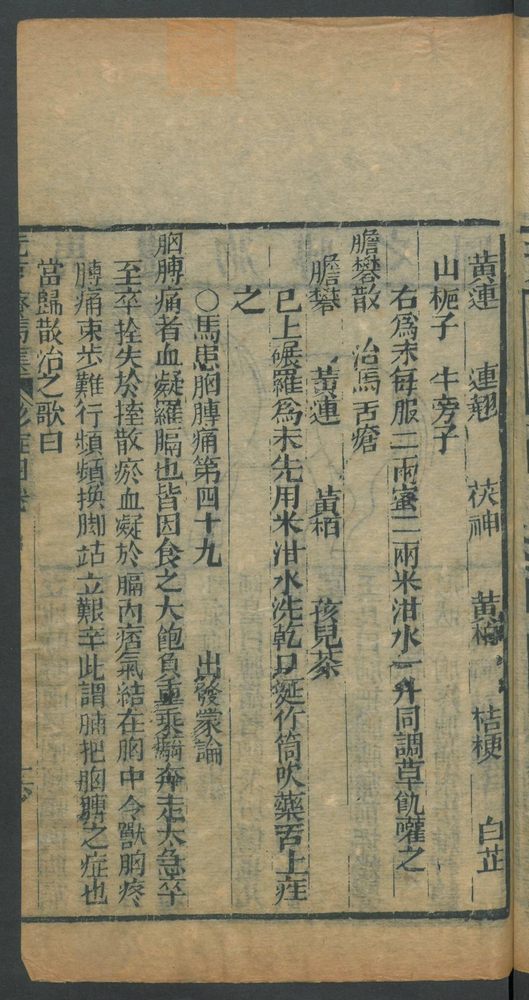 黃連　連翹　茯神　黃栢　桔梗　白芷
山梔子　牛旁子
右爲末每服二兩蜜二兩米泔水一升同調草飢嚾之
膽礬散　治馬舌瘡
膽礬　黃連　黃栢　孩兒茶
已上碾羅爲末先用米泔水洗乾口涎竹筒吹藥舌上痊
之
○馬患胸膊痛第四十九　出發蒙論
胸膊痛者血凝羅膈也皆因食之大飽負重乘騎奔走大急卒
至卒拴失於𢴤散瘀血凝於膈內痞氣結在胸中令獸胸疼
膊痛束步難行頻頻換脚站立艱辛此謂腩把胸膊之症也
當歸散治之歌曰